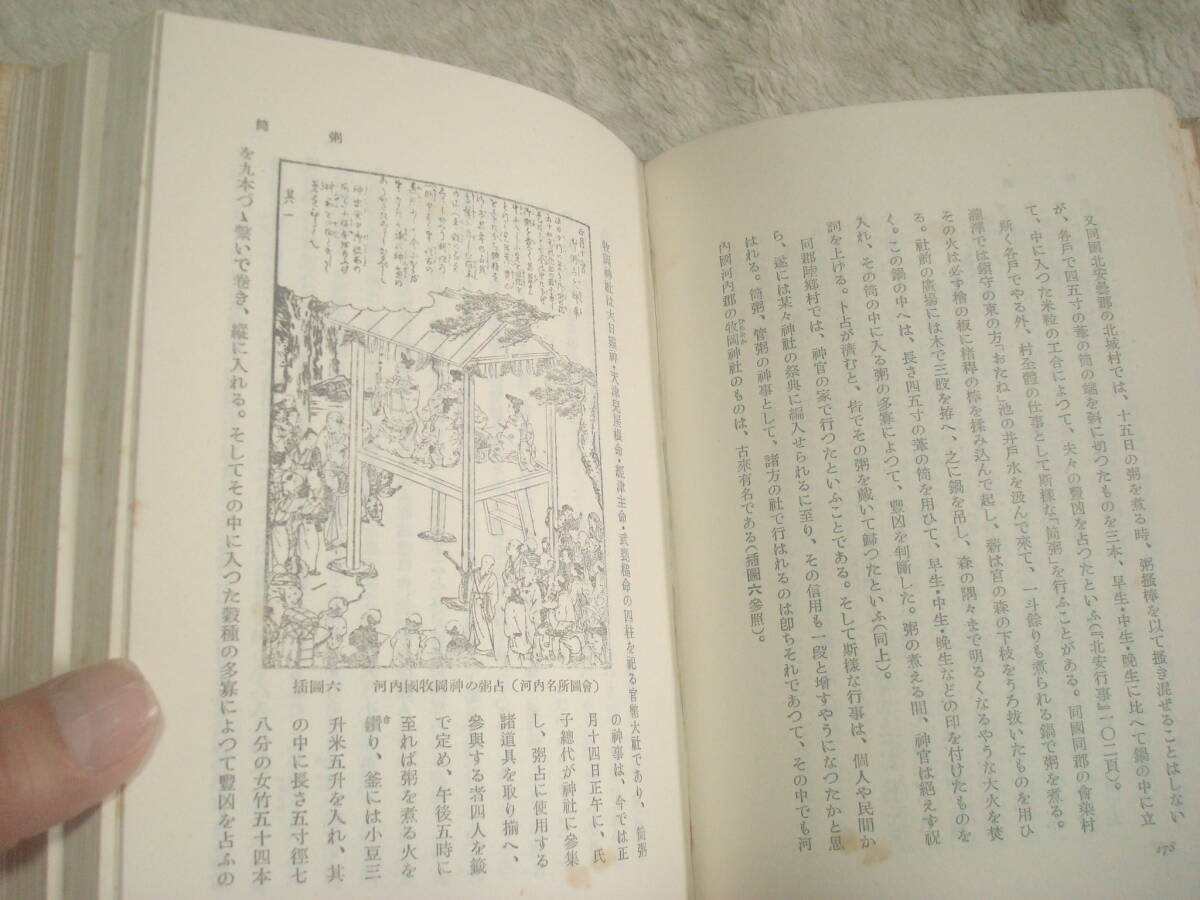 又同國北安曇郡の北城村では、十五日の粥を煮る時、粥搔棒を以て搔き混ぜることはしない
が、各戶で四五寸の葦の筒の端を斜に切つたものを三本、早生・中生・晩生に比へて鍋の中に立
て、中に入つた米粒の工合によつて、夫々の豐凶を占つたといふ(『北安行事』一〇二頁)。
所く各戶でやる外、村全體の仕事として斯樣な「筒粥」を行ふことがある。同國同郡の會染村
瀧澤では鎭守の東の方「おたね」池の井戶水を汲んで來て、一斗餘りも煮られる鍋で粥を煮る。
その火は必ず檜の板に楮稈の棒を揉み込んで起し、薪は宮の森の下枝をうろ拔いたものを用ひ
る。社前の廣場には木で三股を拵へ、之に鍋を吊し、森の隅々まで明るくなるやうな大火を焚
く。この鍋の中へは、長さ四五寸の葦の筒を用ひて、早生・中生・晩生などの印を付けたものを
入れ、その筒の中に入る粥の多寡によつて、豐凶を判斷した。粥の煮える間、神官は絕えず祝
詞を上げる。卜占が濟むと、皆でその粥を戴いて歸つたといふ(同上)。
同郡陸鄕村では、神官の家で行つたといふことである。そして斯樣な行事は、個人や民間か
ら、遂には某々神社の祭典に編入せられるに至り、その信用も一段と增すやうになつたかと思
はれる。筒粥、管粥の神事として、諸方の社で行はれるのは卽ちそれであつて、その中でも河
內國河內郡の牧岡神社のものは、古來有名である(插圖六參照)。
178
筒粥
其一
插圖六 河內國牧岡神の粥占(河內名所圖會)
牧岡神社は大日靈神・天津兒屋根命・經津主命・武甕槌命の四柱を祀る官幣大社であり、筒粥
の神事は、今では正
月十四日正午に、氏
子總代が神社に參集
し、粥占に使用する
諸道具を取り揃へ、
參與する者四人を籤
で定め、午後五時に
至れば粥を煮る火を
鑽り、釜には小豆三
升米五升を入れ、其
の中に長さ五寸徑七
八分の女竹五十四本
を九本づゝ繫いで卷き、縱に入れる。そしてその中に入つた穀種の多寡によつて豐凶を占ふの